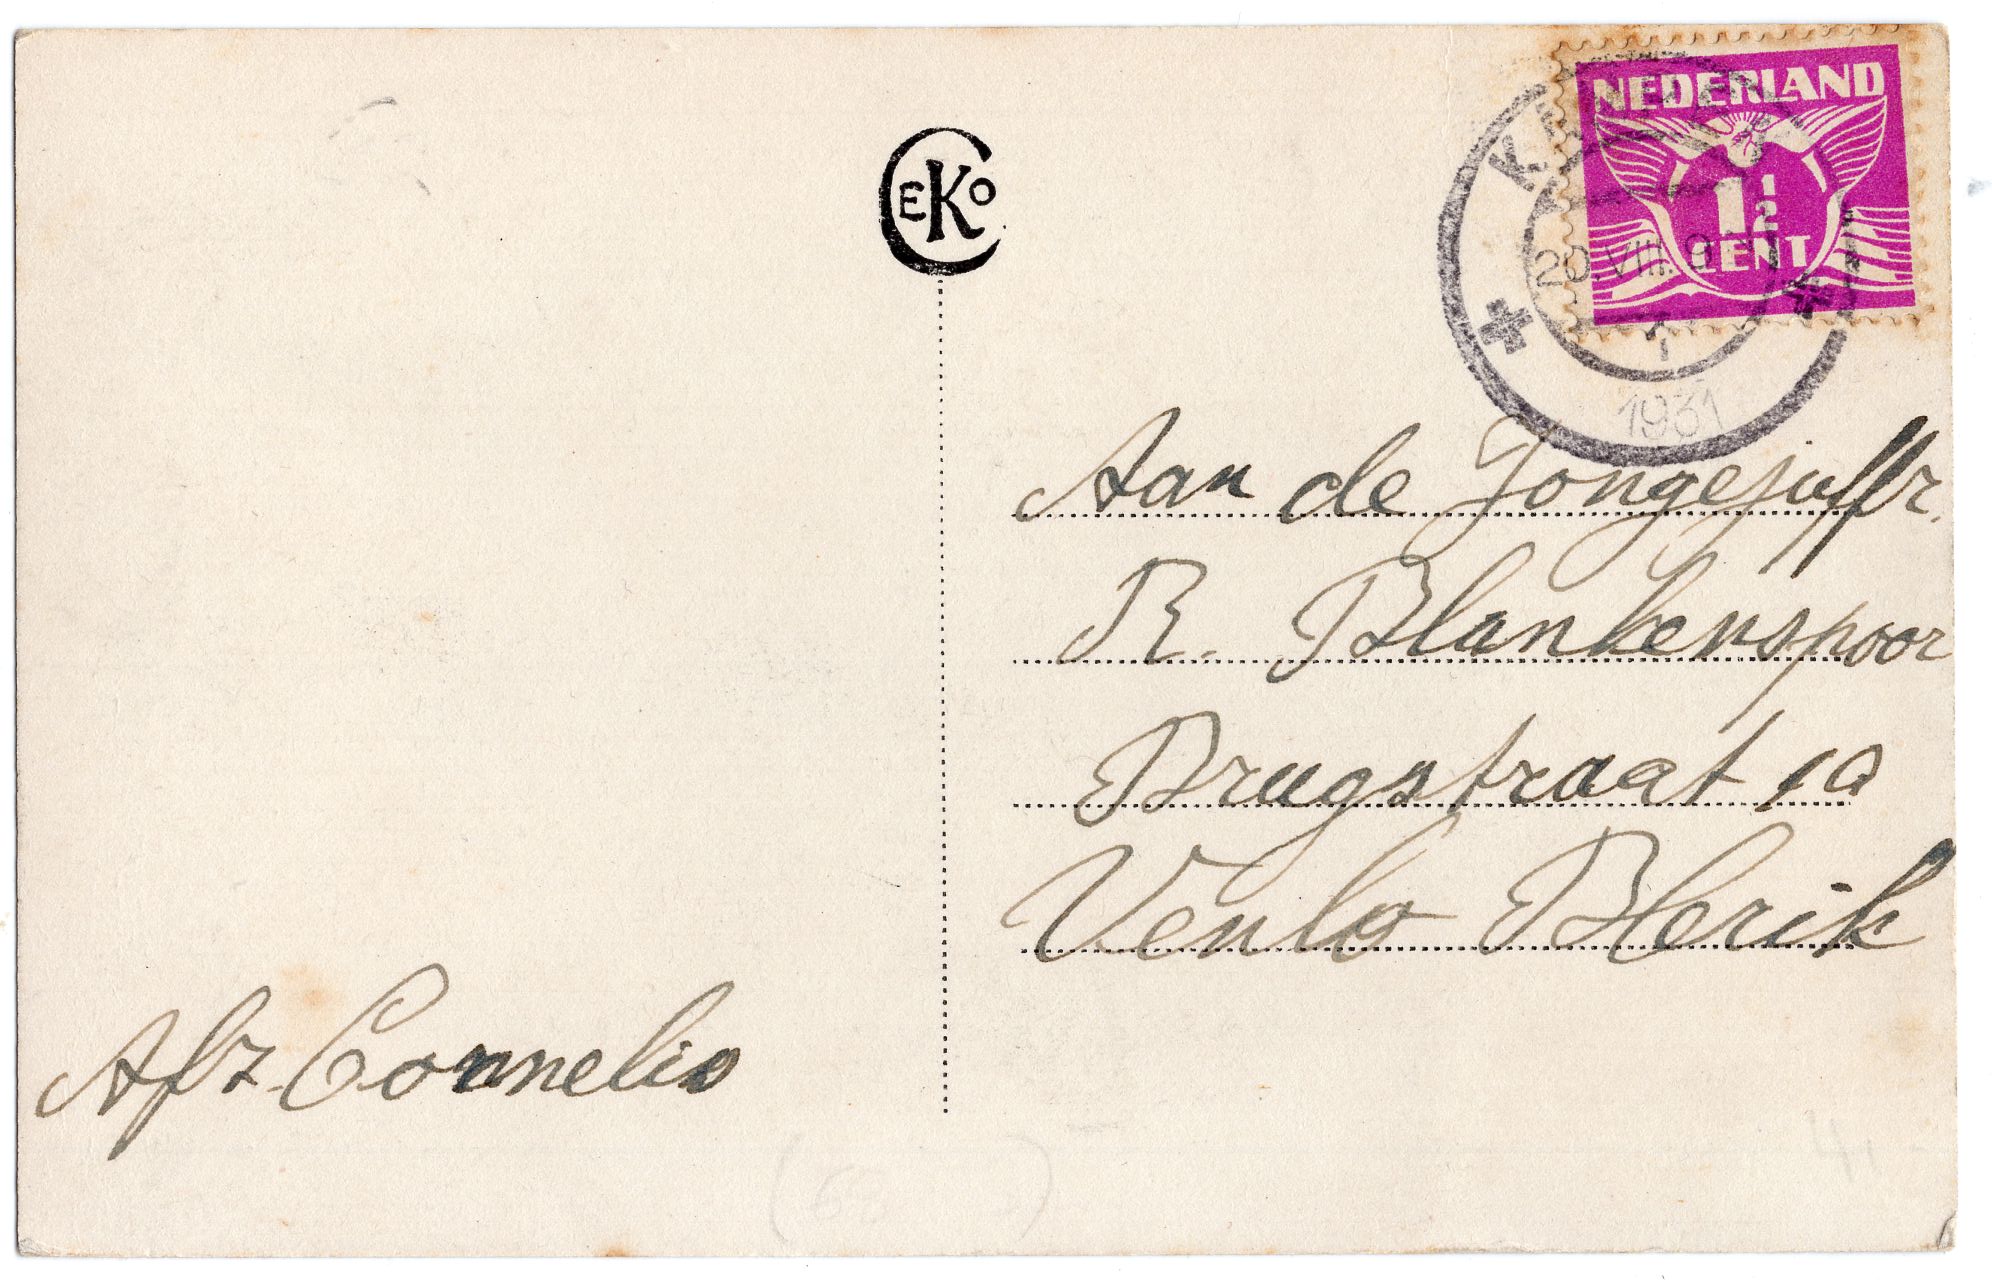 CEKO
NEDERLAND
1 1/2
CENT
20.VIII.
1931
Aan de Jongejuffr.
R. Blankenspoor
Brugstraat 10
Venlo Blerik
Afz. Cornelis